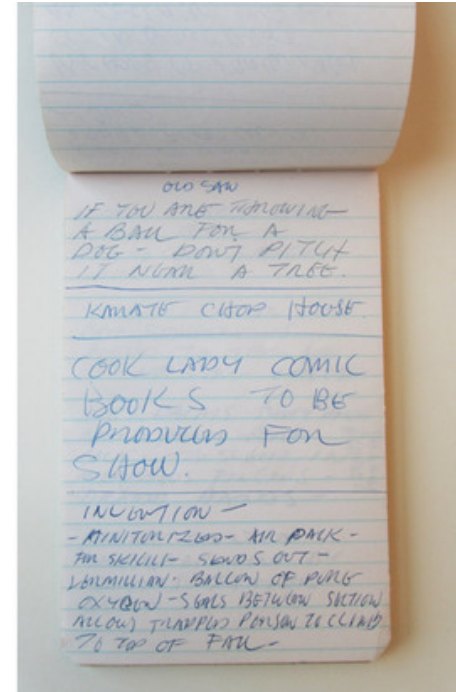 OLD SAW
IF YOU ARE THROWING
A BALL FOR A
DOG - DON'T PITCH
IT NEAR A TREE.
KARATE CHOP HOUSE.
COOK LADY COMIC
BOOKS TO BE
PRODUCED FOR
SHOW.
INVENTION -
- MINITURIZED - AIR PACK -
FOR SKIIER - SENDS OUT -
VERMILLIAN - BALLON OF PURE
OXYGEN - SEALS BETWEEN SECTION
ALLOWS TRAPPED PERSON TO CLIMB
TO TOP OF